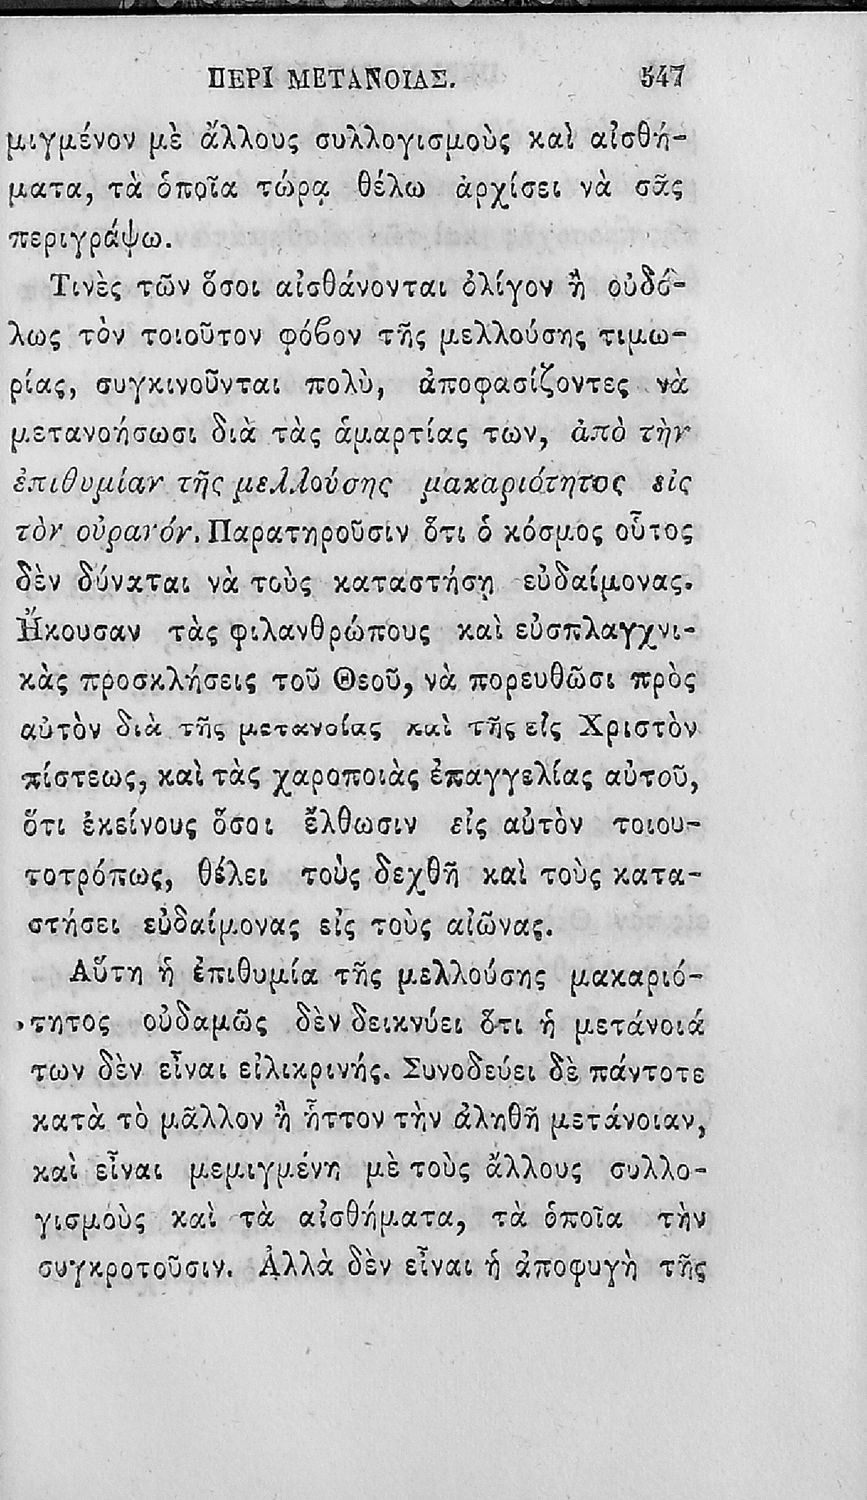 ΠΕΡῚ ΜΕΤΑΝΟΙΑΣ. 547
μιγμένον μὲ ἄλλους συλλογισμοὺς καὶ αἰσθή-
ματα, τὰ ὁποῖα τώρα θέλω ἀρχίσει νὰ σᾶς
περιγράψω.
Τινὲς τῶν ὅσοι αἰσθάνονται ὀλίγον ἢ οὐδό-
λως τὸν τοιοῦτον φόβον τῆς μελλούσης τιμω-
ρίας, συγκινοῦνται πολὺ, ἀποφασίζοντες νὰ
μετανοήσωσι διὰ τὰς ἁμαρτίας των, ἀπὸ τὴν
ἐπιθυμίαν τῆς μελλούσης μακαριότητος εἰς
τὸν οὐρανόν. Παρατηροῦσιν ὅτι ὁ κόσμος οὗτος
δὲν δύναται νὰ τοὺς καταστήσῃ εὐδαίμονας.
Ἤκουσαν τὰς φιλανθρώπους καὶ εὐσπλαγχνι-
κὰς προσκλήσεις τοῦ Θεοῦ, νὰ πορευθῶσι πρὸς
αὐτὸν διὰ τῆς μετανοίας καὶ τῆς εἰς Χριστὸν
πίστεως, καὶ τὰς χαροποιὰς ἐπαγγελίας αὐτοῦ,
ὅτι ἐκείνους ὅσοι ἔλθωσιν εἰς αὐτὸν τοιου-
τοτρόπως, θέλει τοὺς δεχθῆ καὶ τοὺς κατα-
στήσει εὐδαίμονας εἰς τοὺς αἰῶνας.
Αὕτη ἡ ἐπιθυμία τῆς μελλούσης μακαριό-
τητος οὐδαμῶς δὲν δεικνύει ὅτι ἡ μετάνοιά
των δὲν εἶναι εἰλικρινής. Συνοδεύει δὲ πάντοτε
κατὰ τὸ μᾶλλον ἢ ἧττον τὴν ἀληθῆ μετάνοιαν,
καὶ εἶναι μεμιγμένη μὲ τοὺς ἄλλους συλλο-
γισμοὺς καὶ τὰ αἰσθήματα, τὰ ὁποῖα τὴν
συγκροτοῦσιν. Ἀλλὰ δὲν εἶναι ἡ ἀποφυγὴ τῆς